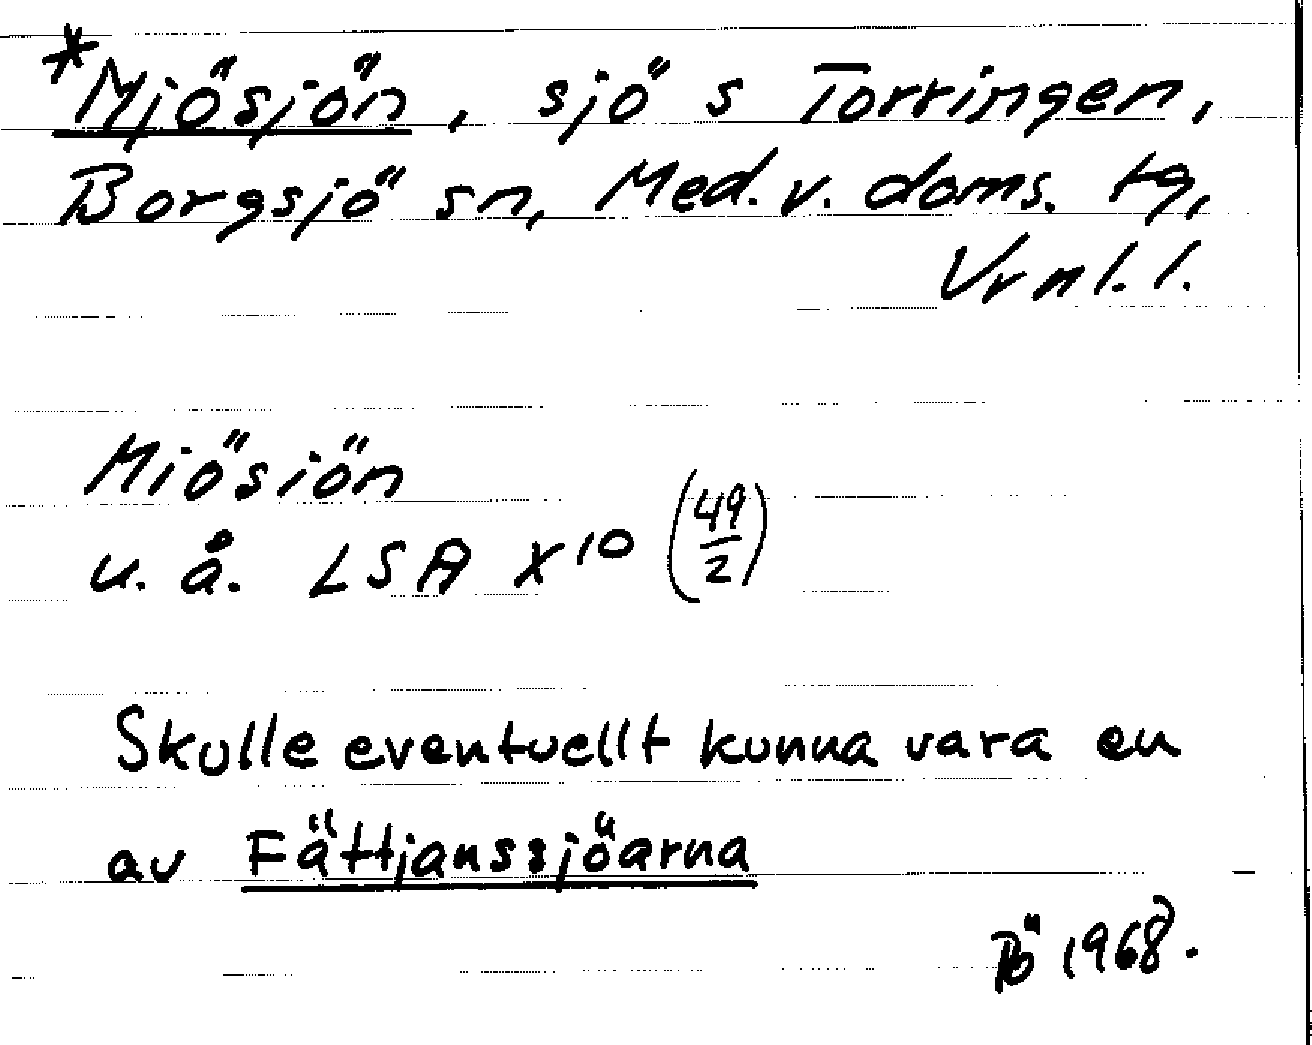 *Mjösjön, sjö s Torringen,
Borgsjö sn, Med. v. doms. tg,
Vrnl. l.
Miösiön
u. å. LSA X10 (49/2)
Skulle eventuellt kunna vara en
av Fättjanssjöarna
Bö 1968.